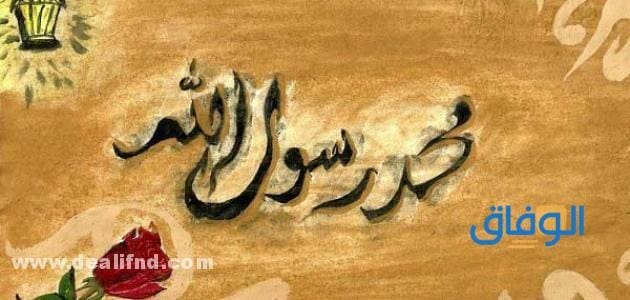 محمد رسول الله
الوفاق
www.dealifnd.com